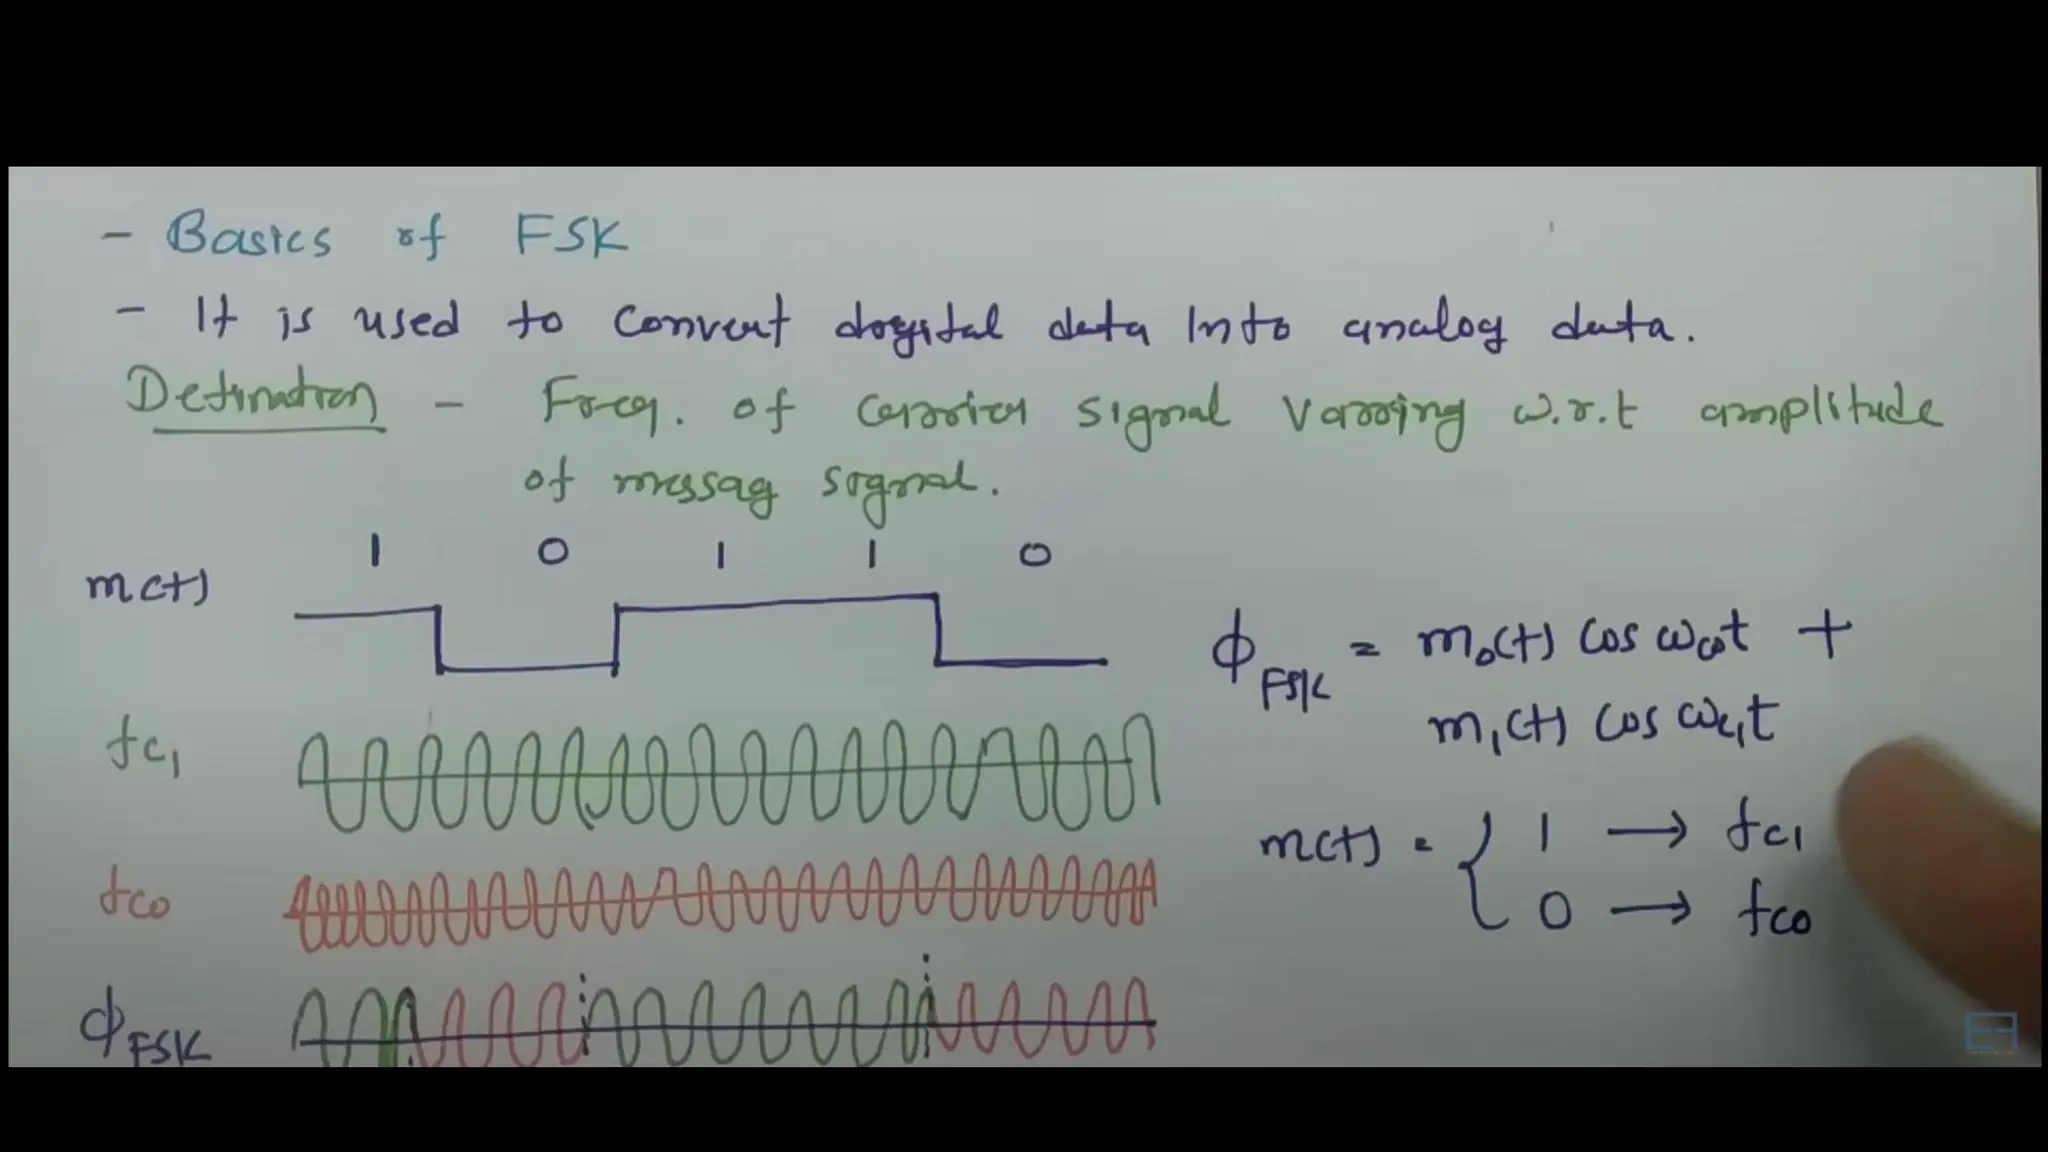 - Basics of FSK
- It is used to convert digital data Into analog data.
Defination - Freq. of carrier signal Varring w.r.t amplitude
of messag signal.
1 0 1 1 0
m(t)
ϕFSK = m0(t) cos ωc0t +
m1(t) cos ωc1t
fc1
m(t) = { 1 → fc1
0 → fc0
fc0
ϕFSK